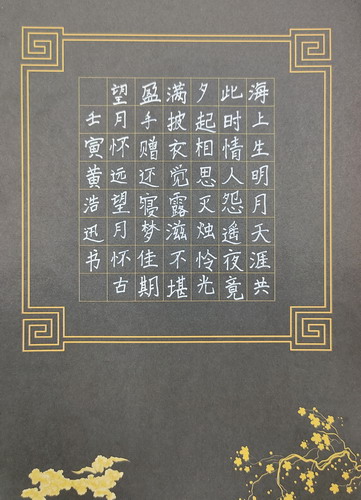 海上生明月天涯共
此时情人怨遥夜竟
夕起相思灭烛怜光
满披衣觉露滋不堪
盈手赠还寝梦佳期
望月怀远望月怀古
壬寅黄浩迅书